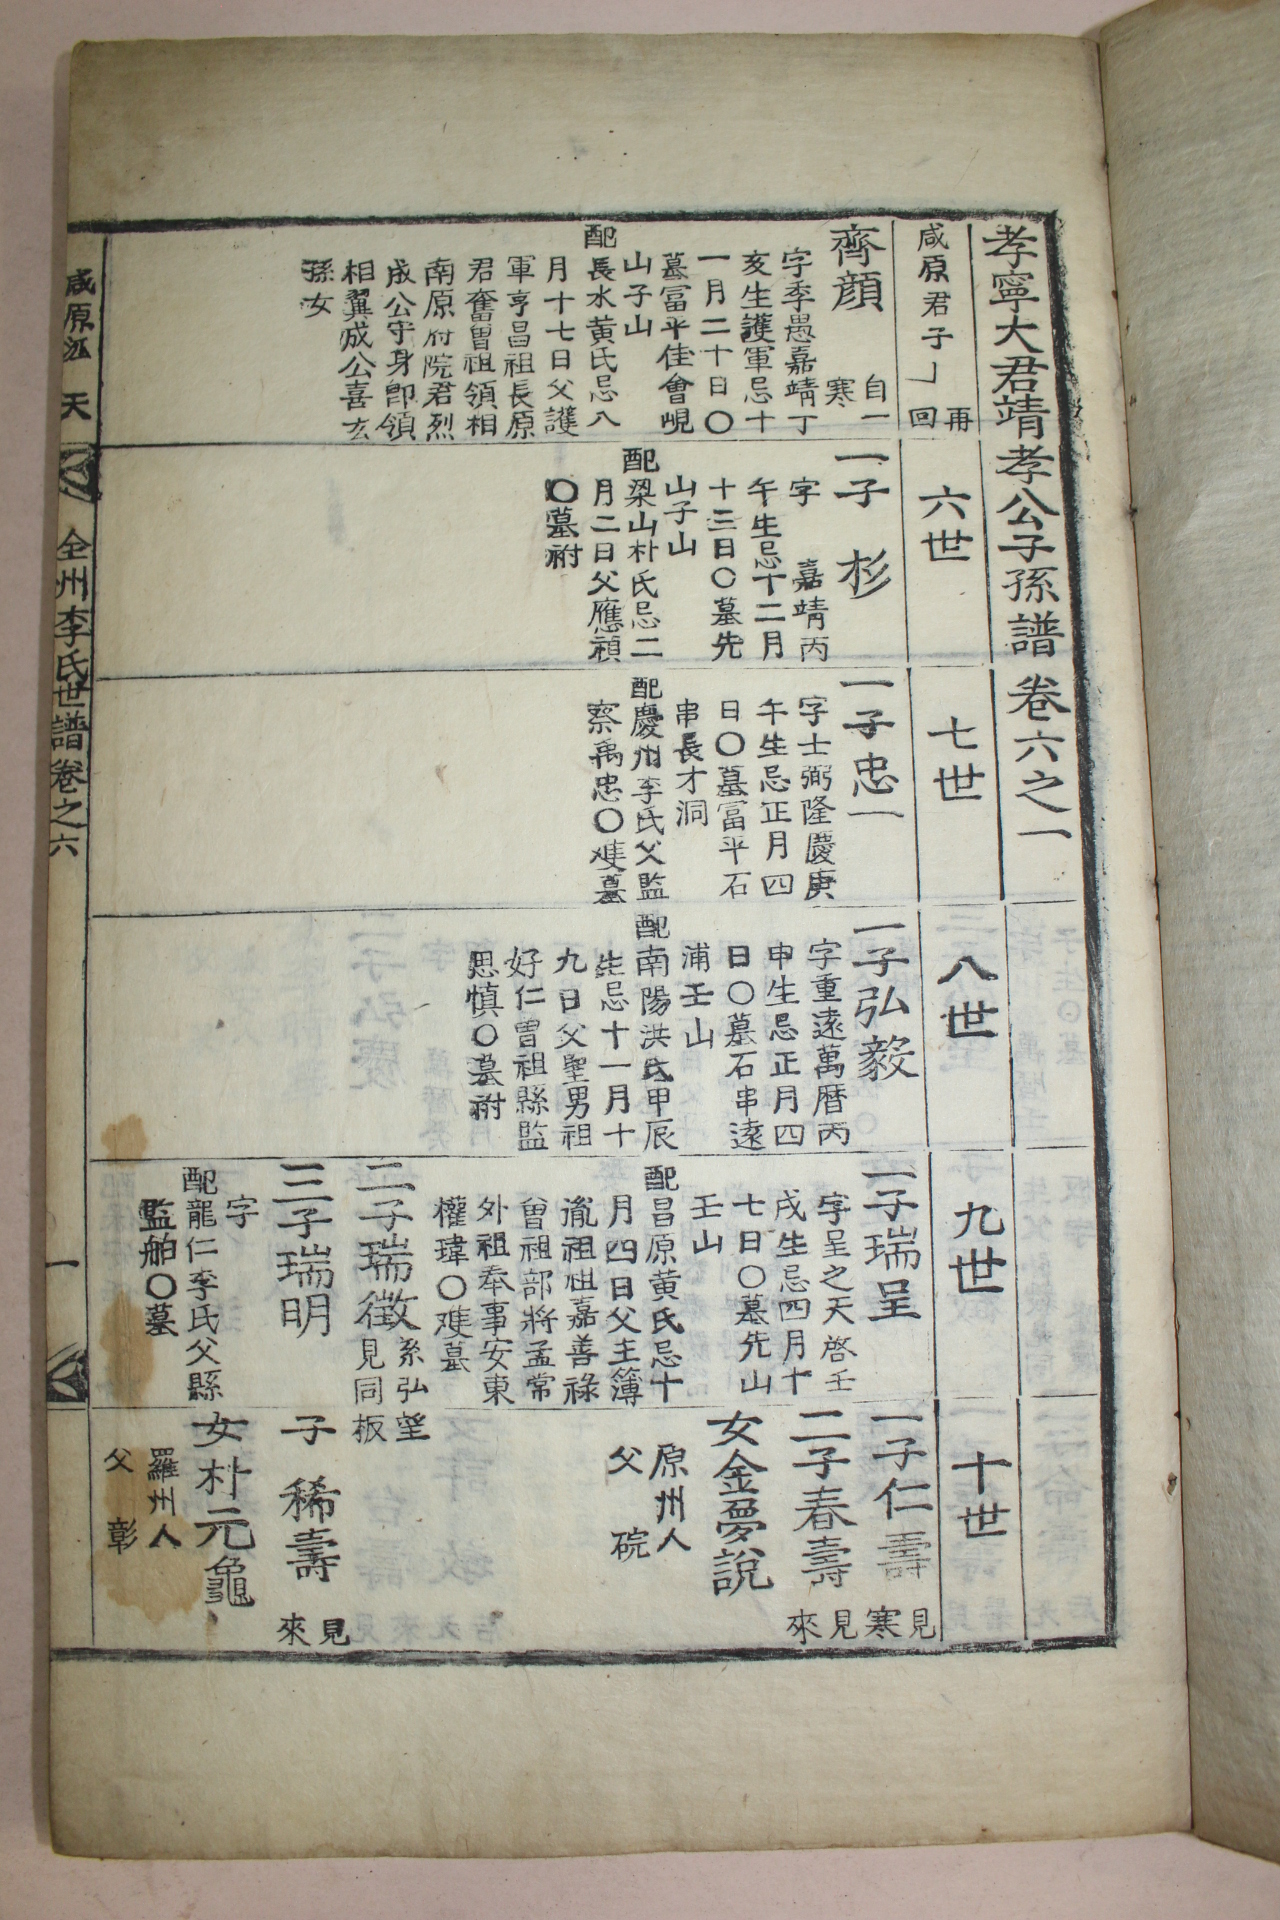 孝寧大君靖孝公子孫譜 卷六之一
咸原君子
再
回
齊顔
自一
寒
字季愚嘉靖丁
亥生護軍忌十
一月二十日〇
墓富平佳會峴
山子山
配長水黄氏忌八
月十七日父護
軍亨昌祖長原
君奮曽祖領相
南原府院君烈
成公守身卽領
相翼成公喜玄
孫女
六世
一子 杉
字 嘉靖丙
午生忌十二月
十三日〇墓先
山子山
配梁山朴氏忌二
月二日父應禎
〇墓祔
七世
一子忠一
字士弼隆慶庚
午生忌正月四
日〇墓富平石
串長才洞
配慶州李氏父監
察禹忠〇雙墓
八世
一子弘毅
字重遠萬曆丙
申生忌正月四
日〇墓石串遠
浦壬山
配南陽洪氏甲辰
生忌十一月十
九日父聖男祖
好仁曽祖縣監
思慎〇墓祔
九世
一子瑞呈
字呈之天啓壬
戌生忌四月十
七日〇墓先山
壬山
配昌原黄氏忌十
月四日父主簿
胤祖祖嘉善祿
曽祖部將孟常
外祖奉事安東
權瑋〇雙墓
二子瑞徵
系弘望
見同板
三子瑞明
字
配龍仁李氏父縣
監舶〇墓
十世
一子仁壽
見寒
二子春壽
見來
女金夢說
原州人
父 碗
子 稀壽
見來
女朴元龜
羅州人
父 彰
咸原派 天
全州李氏世譜卷之六
一